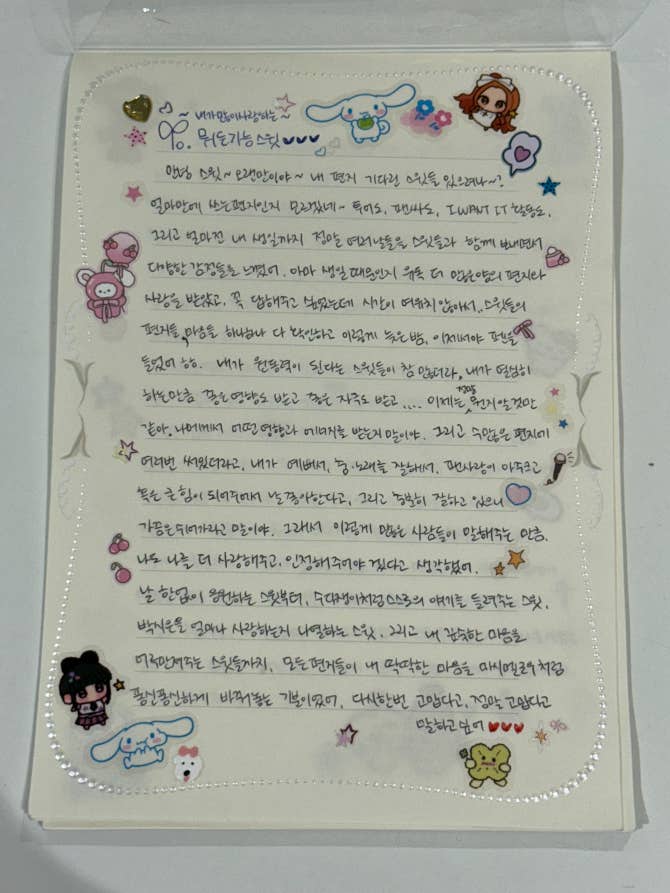 ~ 내가 많이 사랑하는 ~
To. 뭐든 가능 스윗 ♥♥♥
안녕 스윗~ 오랜만이야~ 내 편지 기다린 스윗들 있으려나~?
얼마만에 쓰는 편지인지 모르겠네~ 투어도, 팬싸도, I WANT IT 활동도,
그리고 얼마전 내 생일까지 정말 여러날들을 스윗들과 함께 보내면서
다양한 감정들을 느꼈어. 아마 생일 때문인지 유독 더 많은양의 편지와
사랑을 받았고, 꼭 답해주고 싶었는데 시간이 여의치 않아서.. 스윗들의
편지들, 마음을 하나하나 다 확인하고 이렇게 늦은 밤, 이제서야 펜을
들었어 하하. 내가 원동력이 된다는 스윗들이 참 많더라, 내가 열심히
하는만큼 좋은 영향도 받고 좋은 자극도 받고.... 이제는 정말 뭔지 알 것만
같아, 나에게서 어떤 영향과 에너지를 받는지 말이야. 그리고 수많은 편지에
여러번 써있더라고, 내가 예뻐서, 춤·노래를 잘해서, 팬사랑이 아주 크고
혹은 큰 힘이 되어주어서 날 좋아한다고, 그리고 충분히 잘하고 있으니
가끔은 쉬어가라고 말이야. 그래서 이렇게 많은 사람들이 말해주는 만큼,
나도 나를 더 사랑해주고, 인정해주어야 겠다고 생각했어.
날 한없이 응원하는 스윗부터, 수다쟁이처럼 스스로의 얘기를 들려주는 스윗,
박시은을 얼마나 사랑하는지 나열하는 스윗, 그리고 내 깊숙한 마음을
어루만져주는 스윗들까지, 모든 편지들이 내 딱딱한 마음을 마시멜로우처럼
폭신폭신하게 바꿔놓는 기분이었어, 다시한번 고맙다고, 정말 고맙다고
말하고 싶어 ♥♥♥